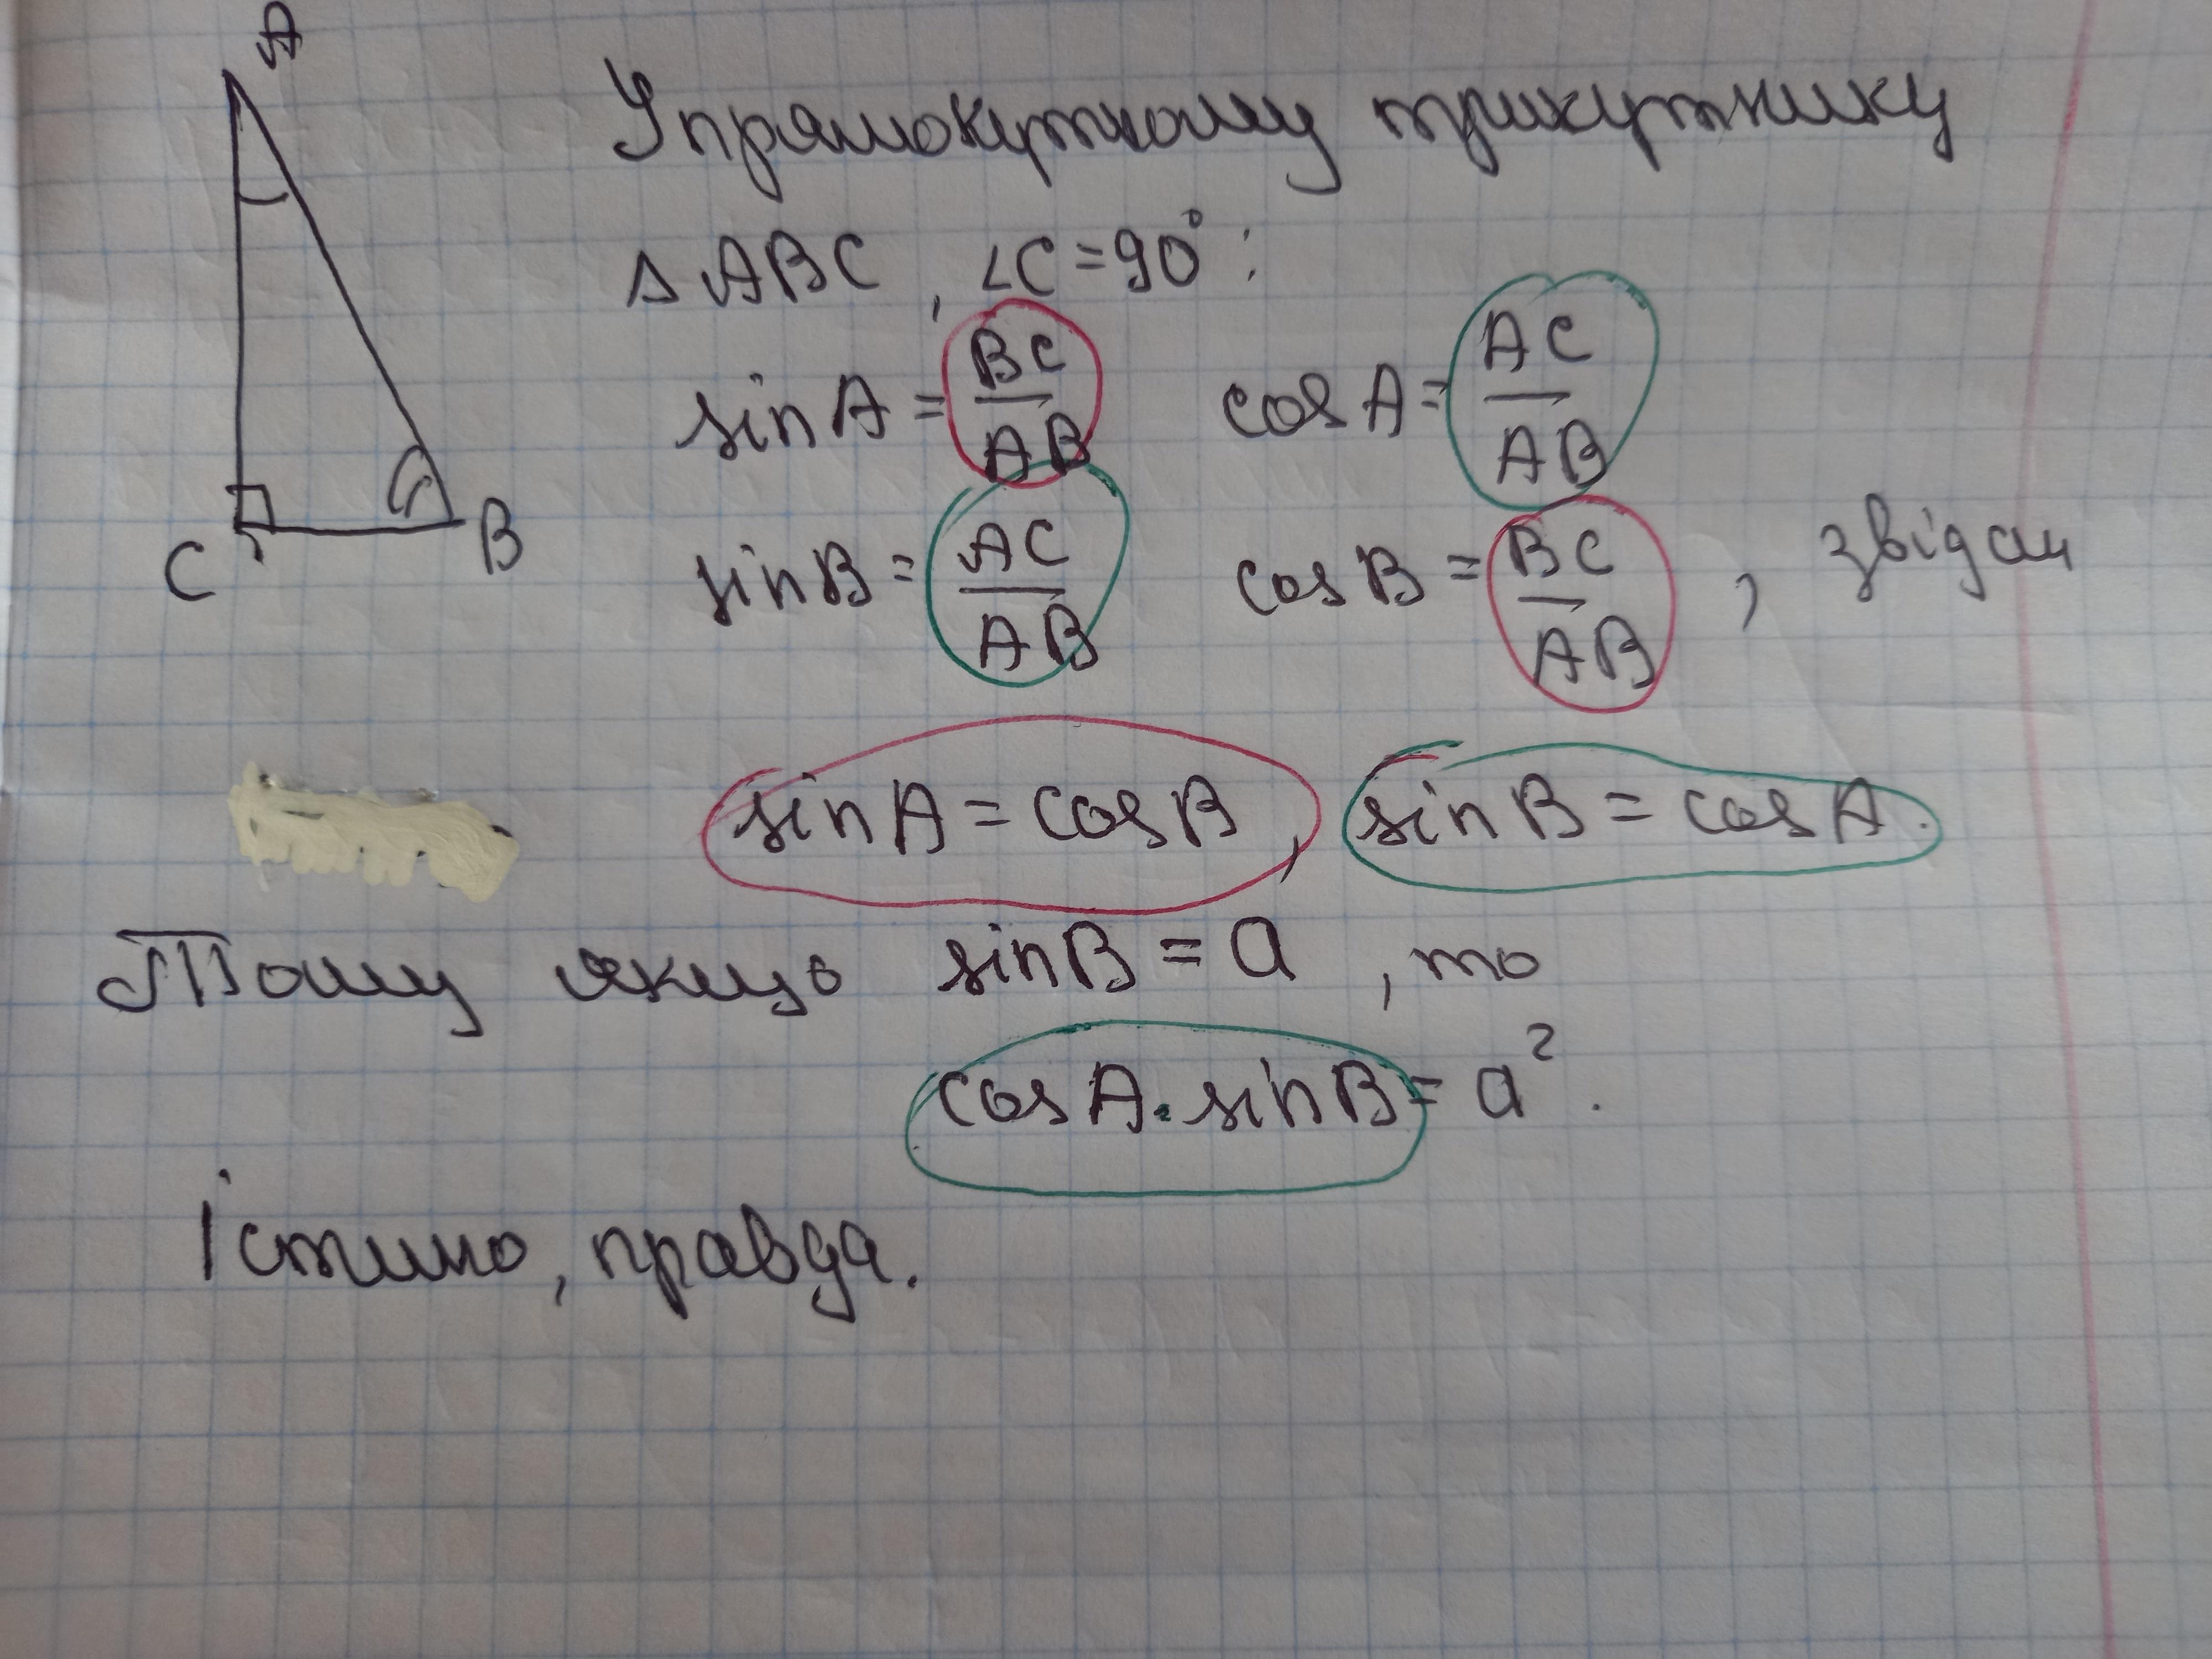 A
C
B
У прямокутному трикутнику
△ ABC , ∠C = 90° :
sin A = BC/AB cos A = AC/AB
sin B = AC/AB cos B = BC/AB , звідси
sin A = cos B , sin B = cos A .
Тому якщо sin B = a , то
cos A · sin B = a² .
Істино, правда.